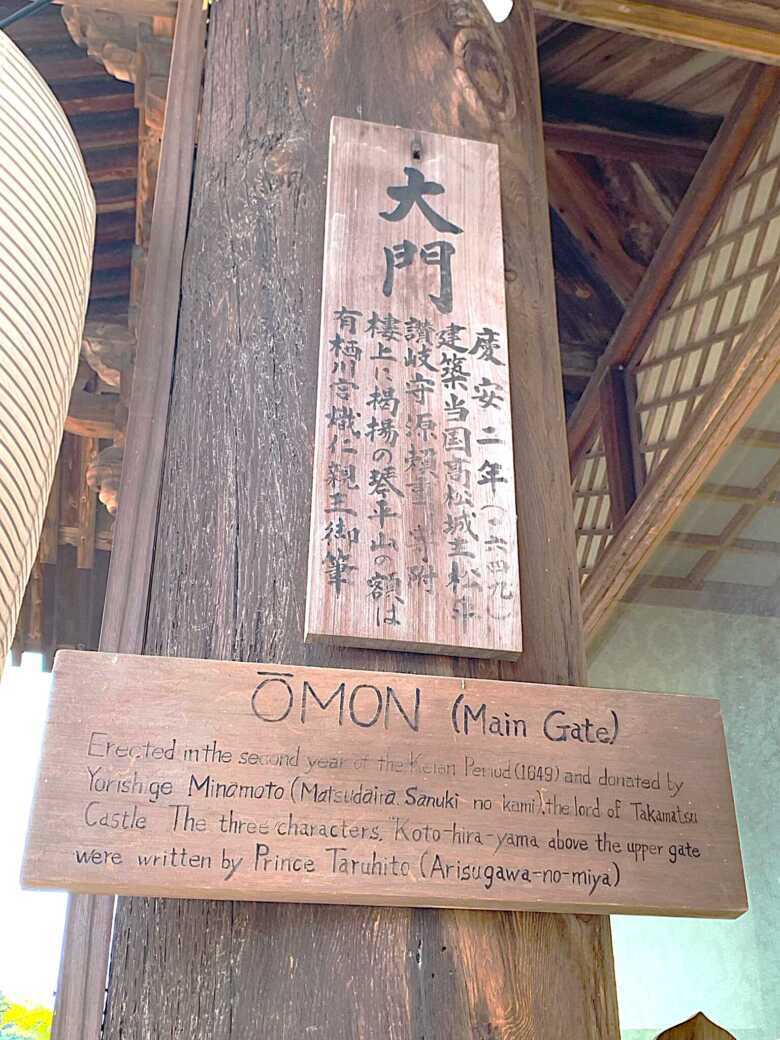 大門
慶安二年(一六四九)
建築当国高松城主松平
讃岐守源頼重寄附
楼上に掲揚の琴平山の額は
有栖川宮熾仁親王御筆
ŌMON (Main Gate)
Erected in the second year of the Keian Period (1649) and donated by
Yorishige Minamoto (Matsudaira Sanuki no kami), the lord of Takamatsu
Castle The three characters, "Koto-hira-yama above the upper gate
were written by Prince Taruhito (Arisugawa-no-miya)